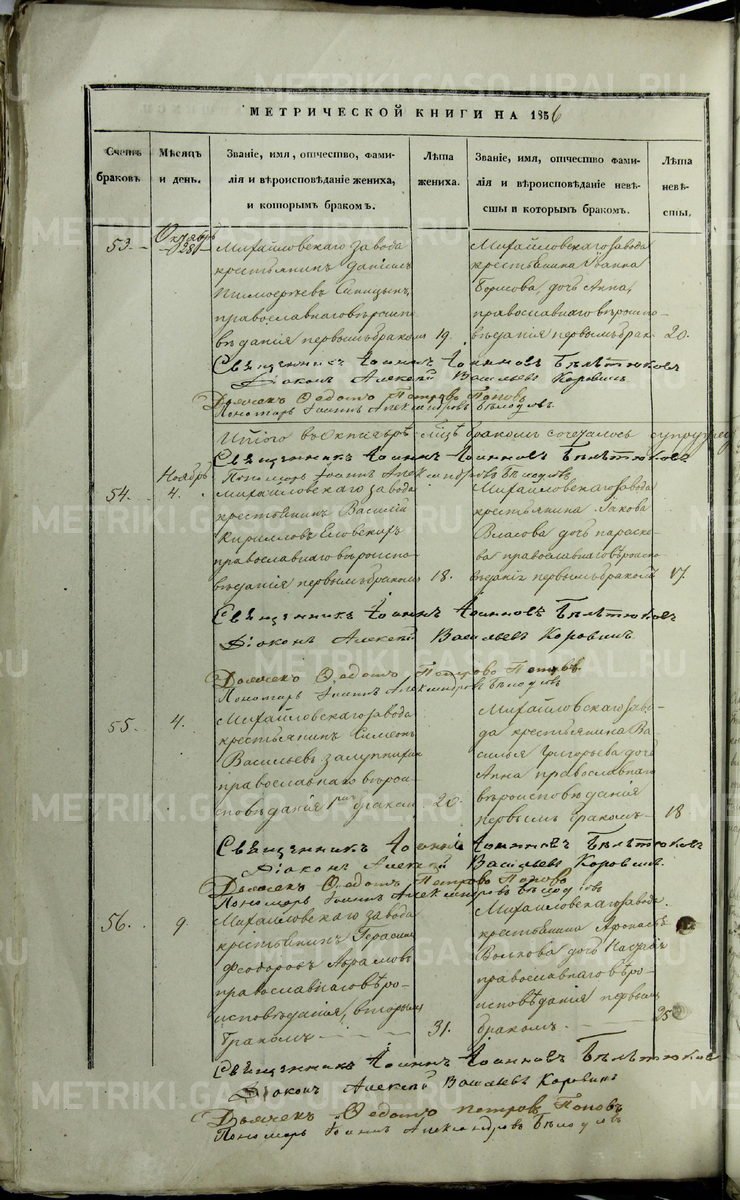 МЕТРИЧЕСКОЙ КНИГИ НА 1856
Счетъ браковъ.
Мѣсяцъ и день.
Званіе, имя, отчество, фами-
лія и вѣроисповѣданіе жениха,
и которымъ бракомъ.
Лѣта жениха.
Званіе, имя, отчество фами-
лія и вѣроисповѣданіе невѣ-
сты и которымъ бракомъ.
Лѣта невѣ-
сты.
53.
Октября
28
Михайловскаго завода
крестьянинъ Даніилъ
Синицынъ,
православнаго вѣроиспо
вѣданія первымъ бракомъ
19.
Михайловскаго завода
крестьянина Іоанна
Борисова дочь Анна,
православнаго вѣроиспо-
вѣданія первымъ брак.
20.
Священникъ Іоаннъ Іоанновъ Бѣлѣтюковъ
Діаконъ Алексѣй Васильевъ Коровинъ
Дьячекъ Ѳедотъ Петровъ Поповъ
Пономарь Іоаннъ Александровъ
Итого въ Октябрѣ м̃цѣ бракомъ сочеталось супруговъ
Священникъ Іоаннъ Іоанновъ Бѣлѣтюковъ
Пономарь Іоаннъ Александровъ
54.
Ноябрь
4.
Михайловскаго завода
крестьянинъ Василій
Кирилловъ
православнаго вѣроиспо-
вѣданія первымъ бракомъ
18.
Михайловскаго завода
крестьянина Іакова
Власова дочь Параске-
ва православнаго вѣроиспо-
вѣданія первымъ бракомъ
17.
Священникъ Іоаннъ Іоанновъ Бѣлѣтюковъ
Діаконъ Алексѣй Васильевъ Коровинъ.
Дьячекъ Ѳедотъ Петровъ Поповъ
Пономарь Іоаннъ Александровъ
55.
4.
Михайловскаго завода
крестьянинъ Симеонъ
Васильевъ
православнаго вѣрои-
сповѣданія 1мъ бракомъ
20.
Михайловскаго заво-
да крестьянина Ва-
силья Григорьева дочь
Анна православнаго
вѣроисповѣданія
первымъ бракомъ
18
Священникъ Іоаннъ Іоанновъ Бѣлѣтюковъ
Діаконъ Алексѣй Васильевъ Коровинъ.
Дьячекъ Ѳедотъ Петровъ Поповъ
Пономарь Іоаннъ Александровъ
56.
9.
Михайловскаго завода
крестьянинъ Герасимъ
Ѳеодоровъ Абрамовъ
православнаго вѣро-
исповѣданія, вторымъ
бракомъ
31.
Михайловскаго завода
крестьянина Афонасья
Волкова дочь
православнаго вѣро-
исповѣданія первымъ
бракомъ.
25
Священникъ Іоаннъ Іоанновъ Бѣлѣтюковъ
Діаконъ Алексѣй Васильевъ Коровинъ
Дьячекъ Ѳедотъ Петровъ Поповъ
Пономарь Іоаннъ Александровъ
METRIKI.GASO.URAL.RU